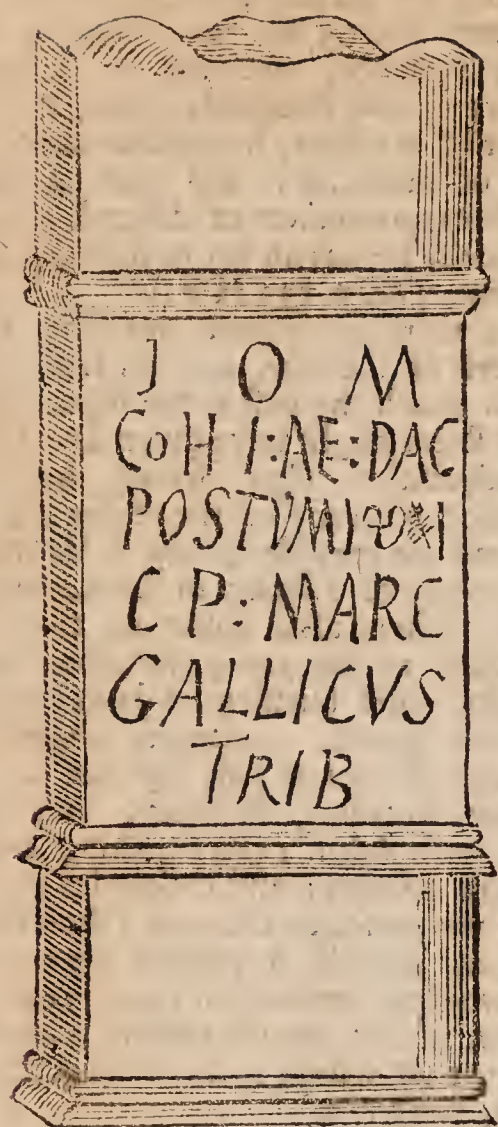 J O M
CoH I:AE:DAC
POSTVMI
C P: MARC
GALLICVS
TRIB